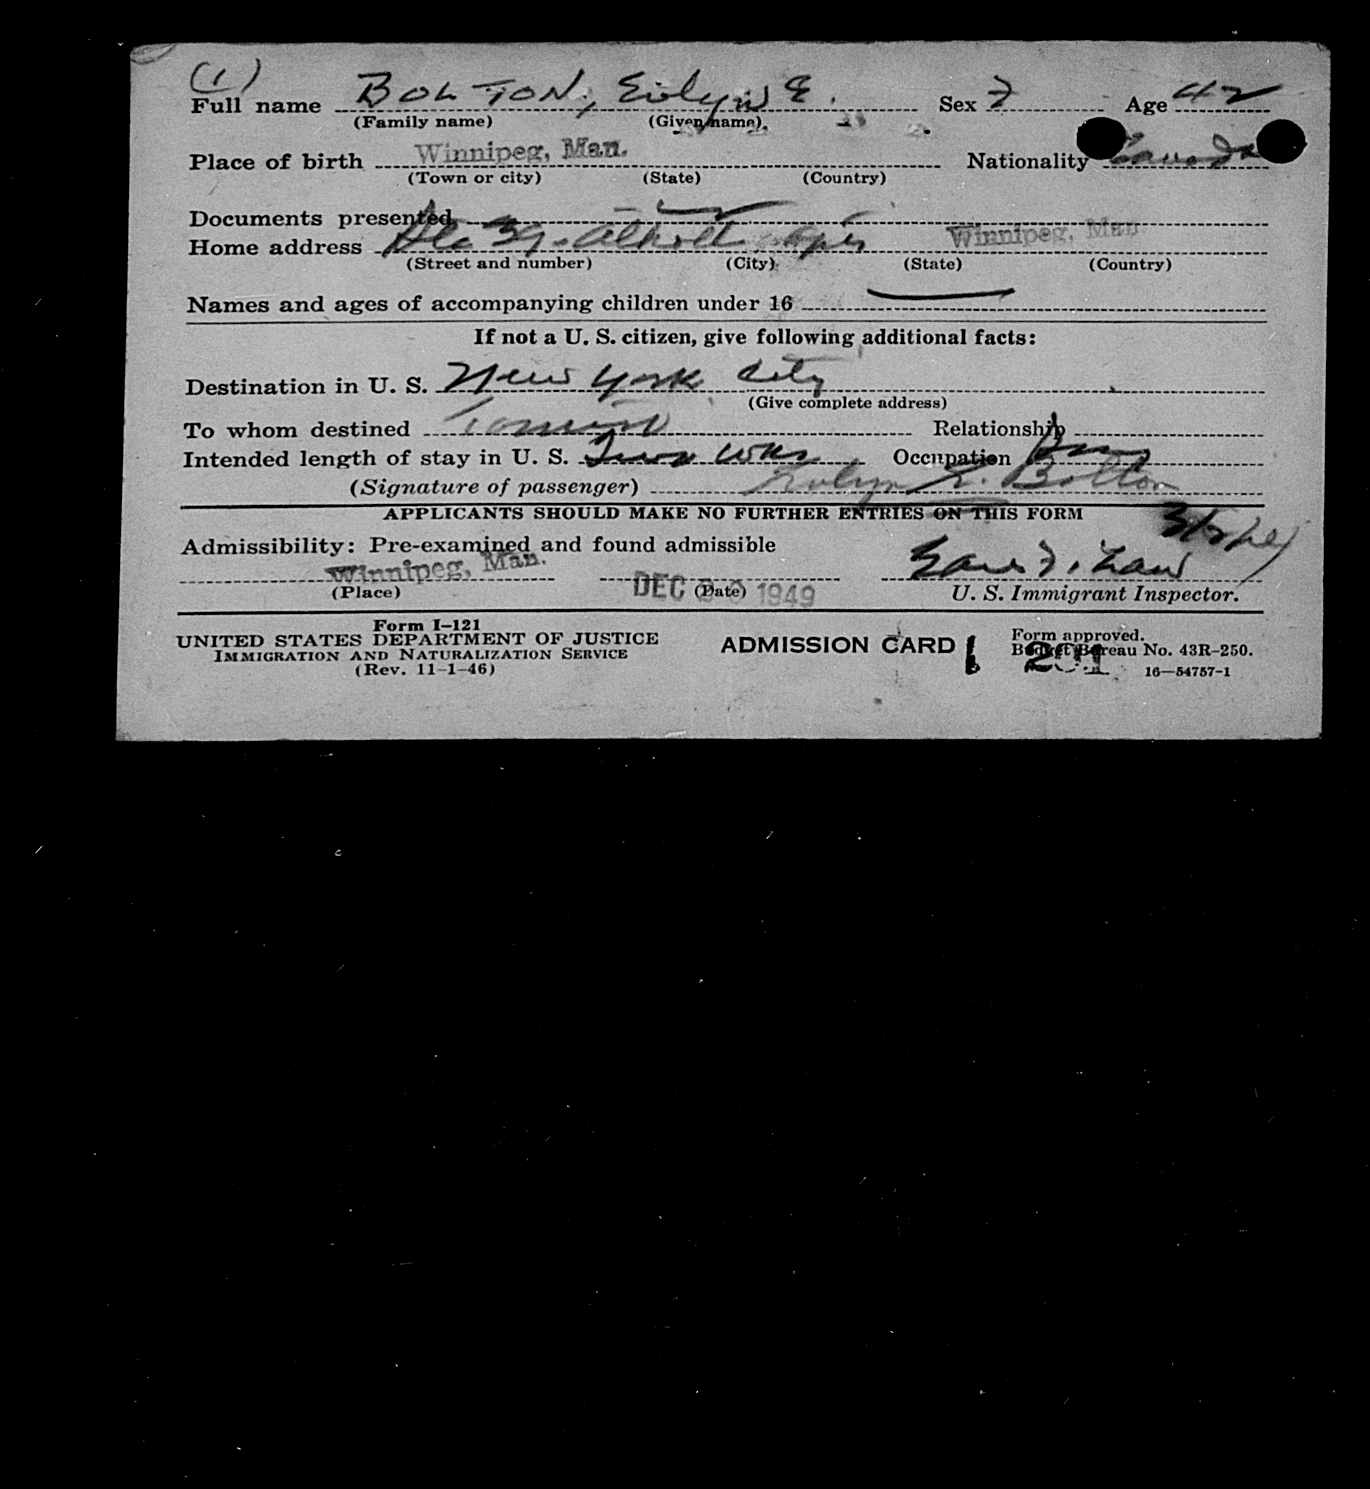 (1)
Full name BOLTON, Evelyn E. Sex F Age 42
(Family name) (Given name)
Place of birth Winnipeg, Man. Nationality Canada
(Town or city) (State) (Country)
Documents presented
Home address Winnipeg, Man
(Street and number) (City) (State) (Country)
Names and ages of accompanying children under 16
If not a U. S. citizen, give following additional facts:
Destination in U. S. New York City
(Give complete address)
To whom destined Tourist Relationship
Intended length of stay in U. S. Two wks Occupation
(Signature of passenger) Evelyn E. Bolton
APPLICANTS SHOULD MAKE NO FURTHER ENTRIES ON THIS FORM
Admissibility: Pre-examined and found admissible
Winnipeg, Man. DEC 1949
(Place) (Date) U. S. Immigrant Inspector.
Form I-121
UNITED STATES DEPARTMENT OF JUSTICE
IMMIGRATION AND NATURALIZATION SERVICE
(Rev. 11-1-46)
ADMISSION CARD
Form approved.
Budget Bureau No. 43R-250.
16—54757-1